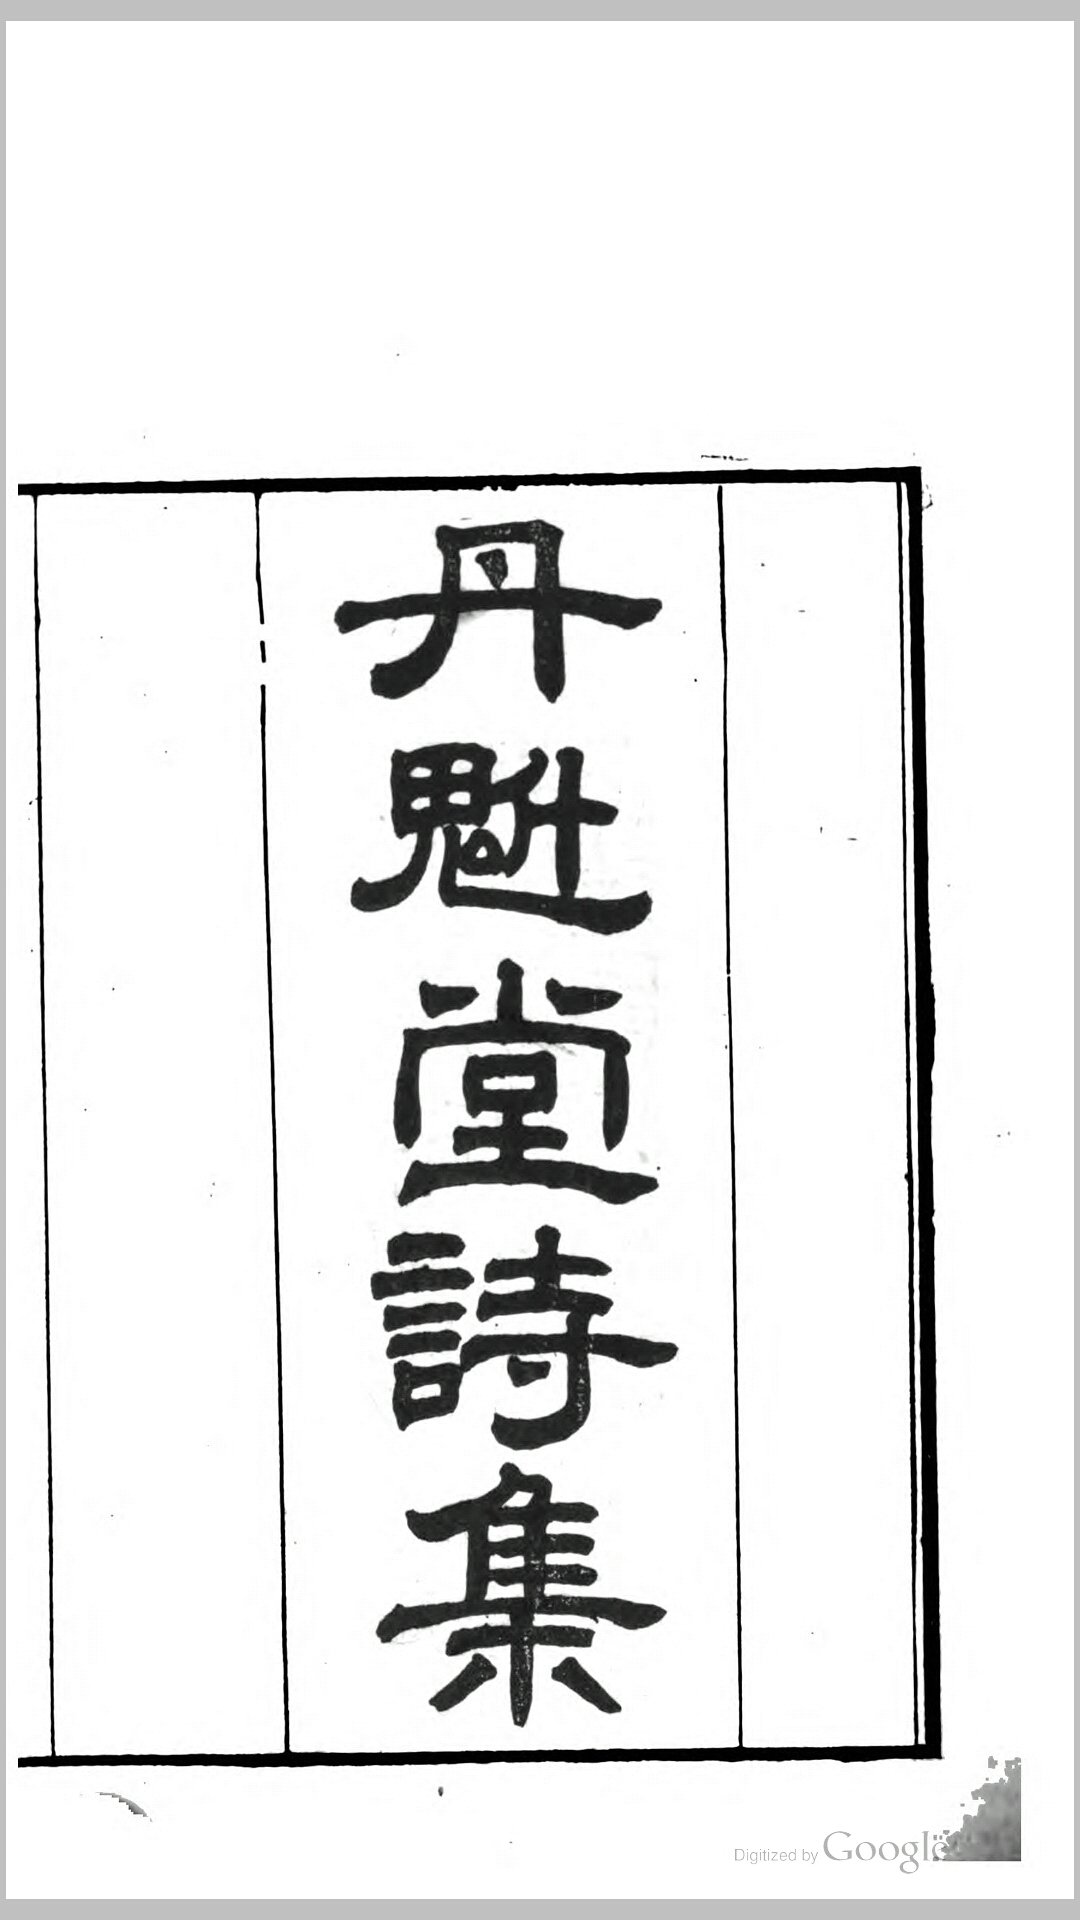 丹魁堂詩集
Digitized by Google